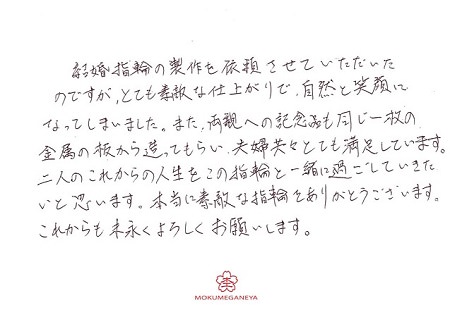 結婚指輪の製作を依頼させていただいた
のですが、とても素敵な仕上がりで、自然と笑顔に
なってしまいました。また、両親への記念品も同じ一枚の
金属の板から造ってもらい、夫婦共々とても満足しています。
二人のこれからの人生をこの指輪と一緒に過ごしていきた
いと思います。本当に素敵な指輪をありがとうございます。
これからも末永くよろしくお願いします。
MOKUMEGANEYA